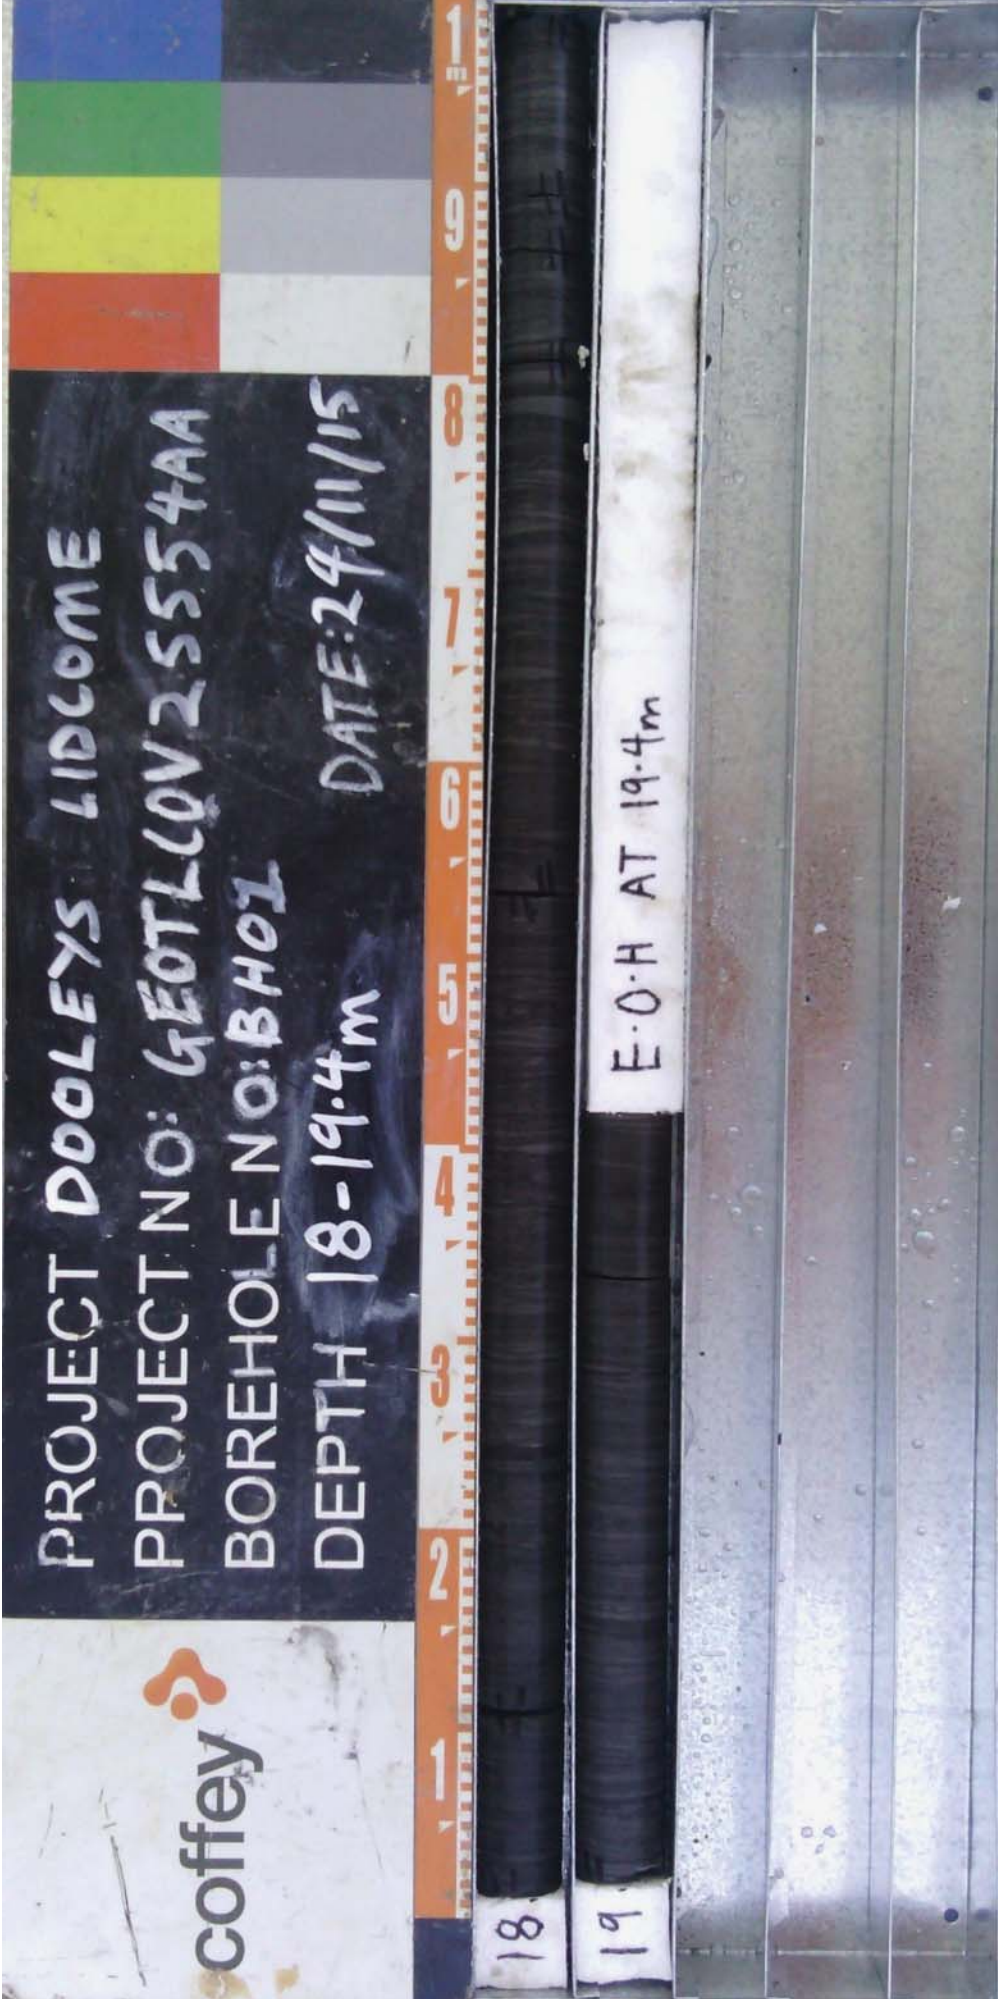 PROJECT DOOLEYS LIDCOME
PROJECT NO: GEOTLCOV25554AA
BOREHOLE NO: BH01
DEPTH 18-19.4m DATE: 24/11/15
coffey
1 2 3 4 5 6 7 8 9 1m
18
19
E.O.H AT 19.4m